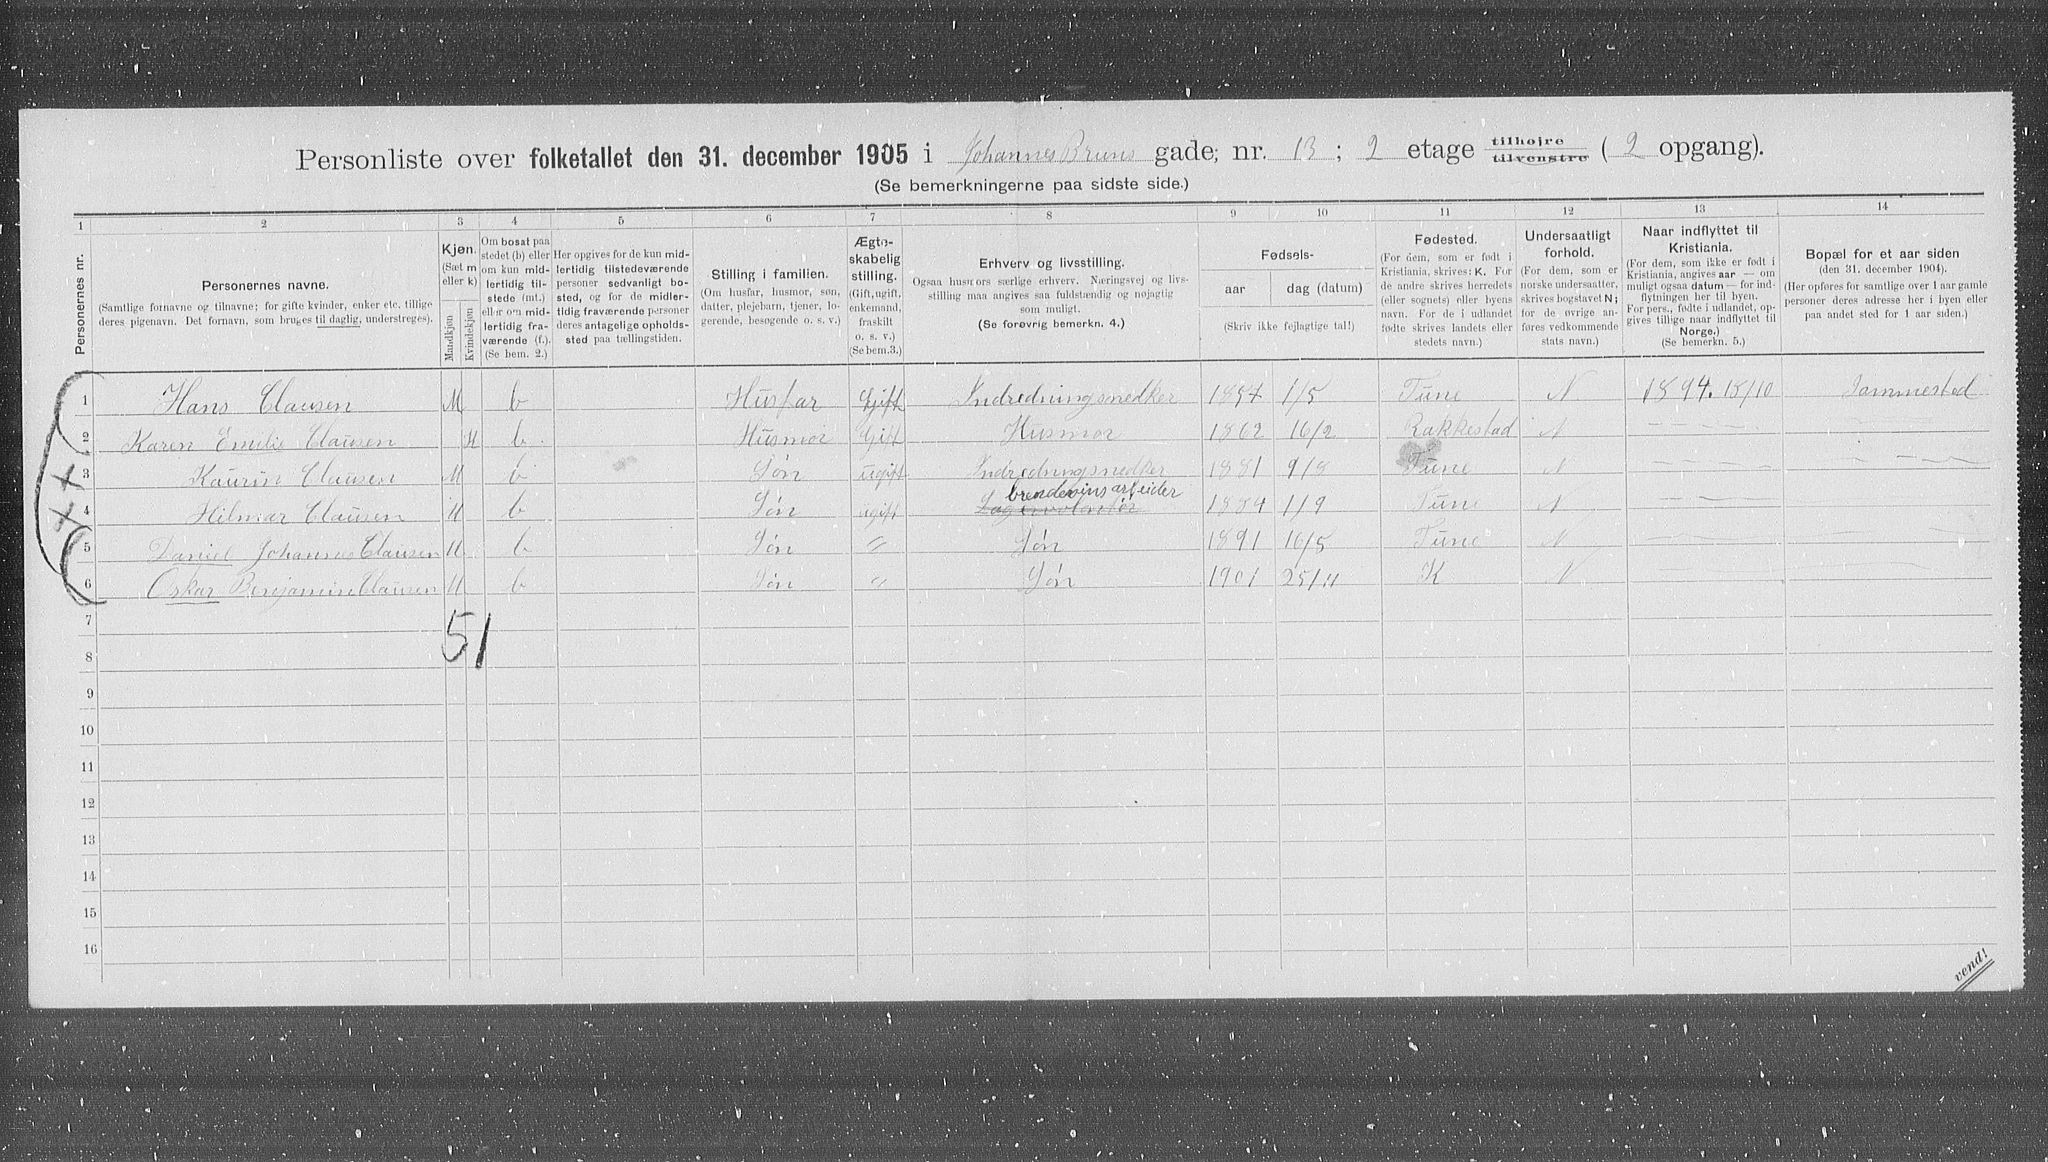 Personliste over folketallet den 31. december 1905 i Johannes Bruns gade; nr. 13; 2 etage tilhøjre tilvenstre (2 opgang).
(Se bemerkningerne paa sidste side.)
1 2 3 4 5 6 7 8 9 10 11 12 13 14
Personernes nr.
Personernes navne.
(Samtlige fornavne og tilnavne; for gifte kvinder, enker etc. tillige deres pigenavn. Det fornavn, som bruges til daglig, understreges).
Kjøn.
(Sæt m eller k)
Mandkjøn
Kvindekjøn
Om bosat paa stedet (b) eller om kun midlertidig tilstede (mt.) eller om midlertidig fraværende (f.).
(Se bem. 2.)
Her opgives for de kun midlertidig tilstedeværende personer sedvanligt bosted, og for de midlertidig fraværende personer deres antagelige opholdssted paa tællingstiden.
Stilling i familien.
(Om husfar, husmor, søn, datter, plejebarn, tjener, logerende, besøgende o. s. v.)
Ægteskabelig stilling.
(Gift, ugift, enkemand, fraskilt o. s. v.)
(Se bem. 3.)
Erhverv og livsstilling.
Ogsaa husmors særlige erhverv. Næringsvej og livsstilling maa angives saa fuldstændig og nøjagtig som muligt.
(Se forøvrig bemerkn. 4.)
Fødsels-
aar
dag (datum)
(Skriv ikke fejlagtige tal!)
Fødested.
(For dem, som er født i Kristiania, skrives: K. For de andre skrives herredets (eller sognets) eller byens navn. For de i udlandet fødte skrives landets eller stedets navn.)
Undersaatligt forhold.
(For dem, som er norske undersaatter, skrives bogstavet N; for de øvrige anføres vedkommende stats navn.)
Naar indflyttet til Kristiania.
(For dem, som ikke er født i Kristiania, angives aar — om muligt ogsaa datum — for indflytningen her til byen. For pers., fødte i udlandet, opgives tillige naar indflyttet til Norge.)
(Se bemerkn. 5.)
Bopæl for et aar siden
(den 31. december 1904).
(Her opføres for samtlige over 1 aar gamle personer deres adresse her i byen eller paa andet sted for 1 aar siden.)
1 Hans Clausen M b Husfar Gift Indredningsnedker 1857 1/5 Tune N 1894. 18/10 Sammested
2 Karen Emelie Clausen K b. Husmor Gift Husmor 1862 16/2 Rakkestad N
3 Kaurin Clausen M b Søn ugift Indredningsnedker 1881 9/8 Tune N
brendevinsarbeider
4 Hilmar Clausen M b Søn ugift Lagervolontør 1884 1/9 Tune N
5 Daniel Johannes Clausen M b Søn " Søn 1891 16/5 Tune N
6 Oskar Benjamin Clausen M b Søn " Søn 1901 25/11 K N
7 51
8
9
10
11
12
13
14
15
16
vend!